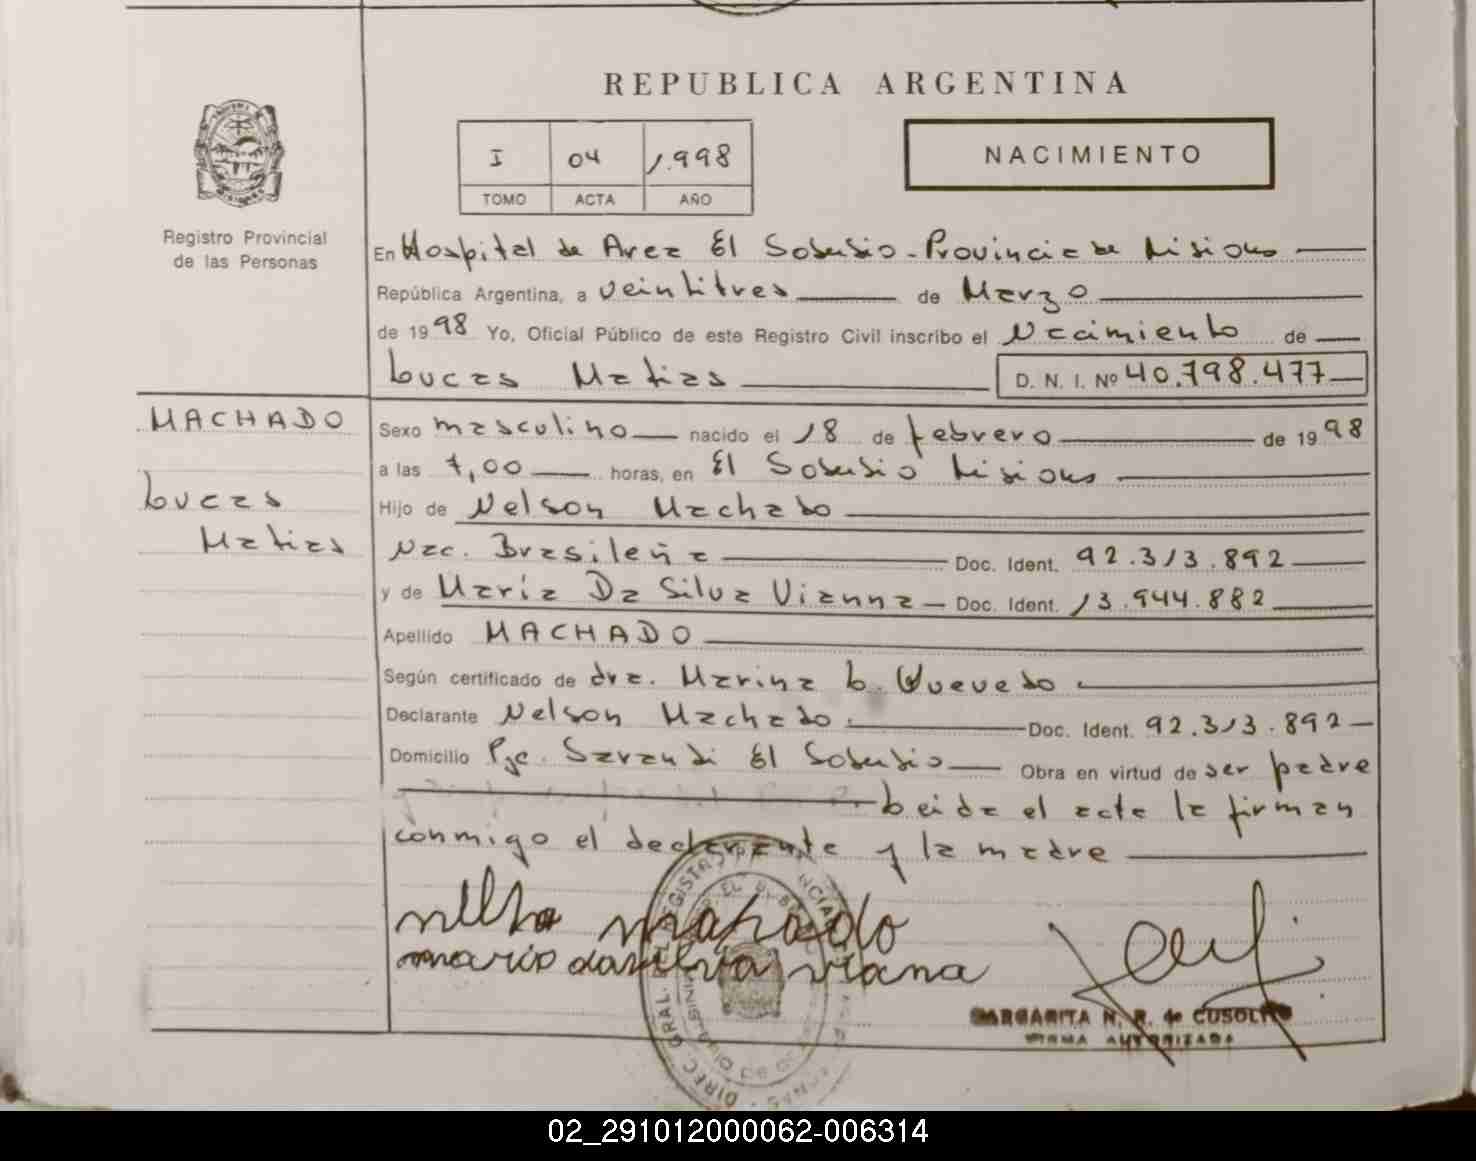 REPUBLICA ARGENTINA
I 04 1.998
TOMO ACTA AÑO
NACIMIENTO
Registro Provincial
de las Personas
En Hospital de Area El Soberbio - Provincia de Misiones
República Argentina, a veintitres de Marzo
de 1998 Yo, Oficial Público de este Registro Civil inscribo el Nacimiento de
Lucas Matias D. N. I. Nº 40.798.477
MACHADO
Lucas
Matias
Sexo masculino nacido el 18 de febrero de 1998
a las 7,00 horas, en El Soberbio Misiones
Hijo de Nelson Machado
Nac. Brasileña Doc. Ident. 92.313.892
y de María Da Silva Vianna Doc. Ident. 13.944.882
Apellido MACHADO
Según certificado de dra. Marina L. Quevedo
Declarante Nelson Machado. Doc. Ident. 92.313.892
Domicilio Pje. Sarandi El Soberbio Obra en virtud de ser padre
Leida el acta la firman
conmigo el declarante y la madre
machado
maria dasilva viana
MARGARITA N. R. de CUSOLITO
FIRMA AUTORIZADA
02_291012000062-006314